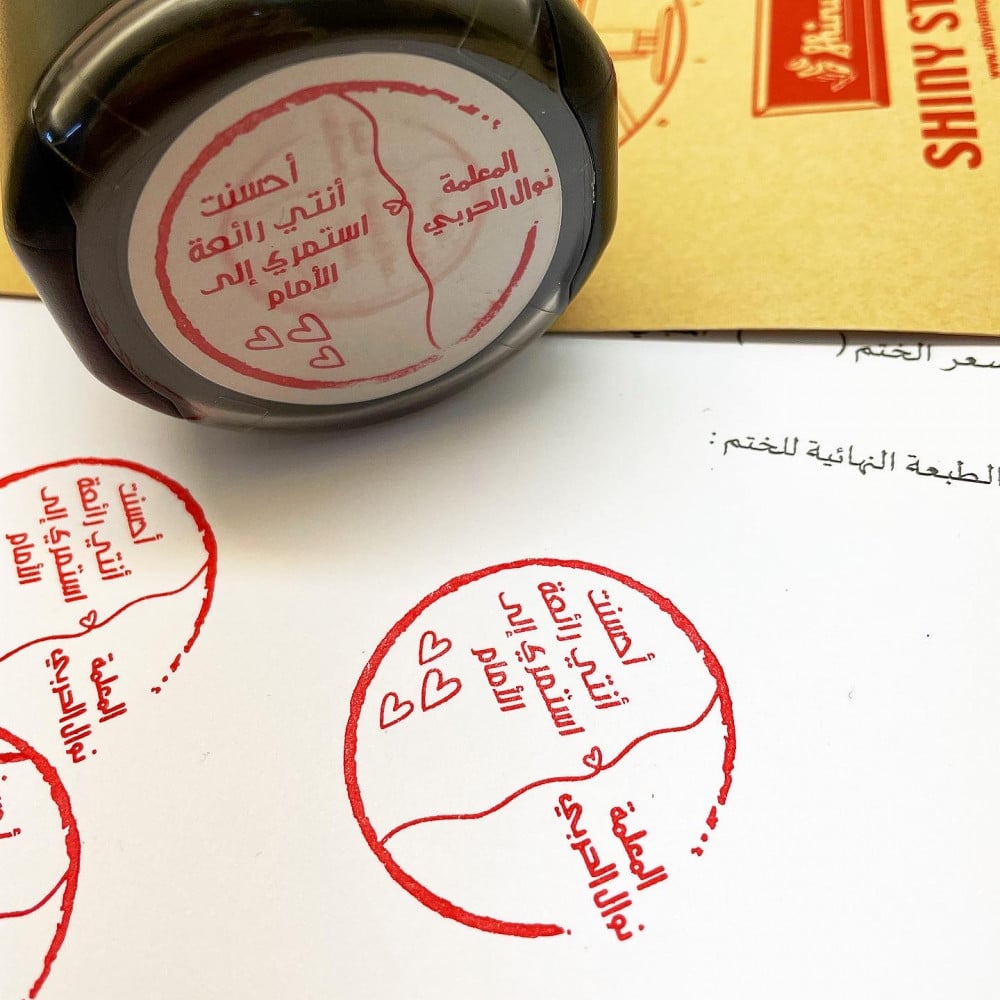 أحسنت
أنتي رائعة
استمري إلى
الأمام
المعلمة
نوال الحربي
Shiny
SHINY ST
سعر الختم (        )
الطبعة النهائية للختم :
أحسنت
أنتي رائعة
استمري إلى
الأمام
المعلمة
نوال الحربي
أحسنت
أنتي رائعة
استمري إلى
الأمام
المعلمة
نوال الحربي